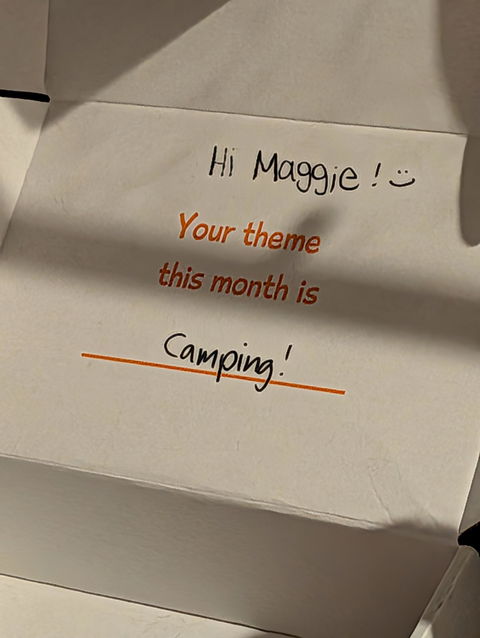 Hi Maggie ! :)
Your theme
this month is
Camping!